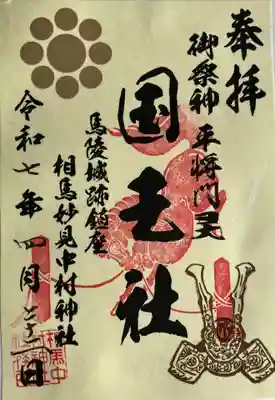 奉拝
御祭神 平将門公
国王社
馬陵城跡鎮座
相馬妙見中村神社
令和七年四月二十二日